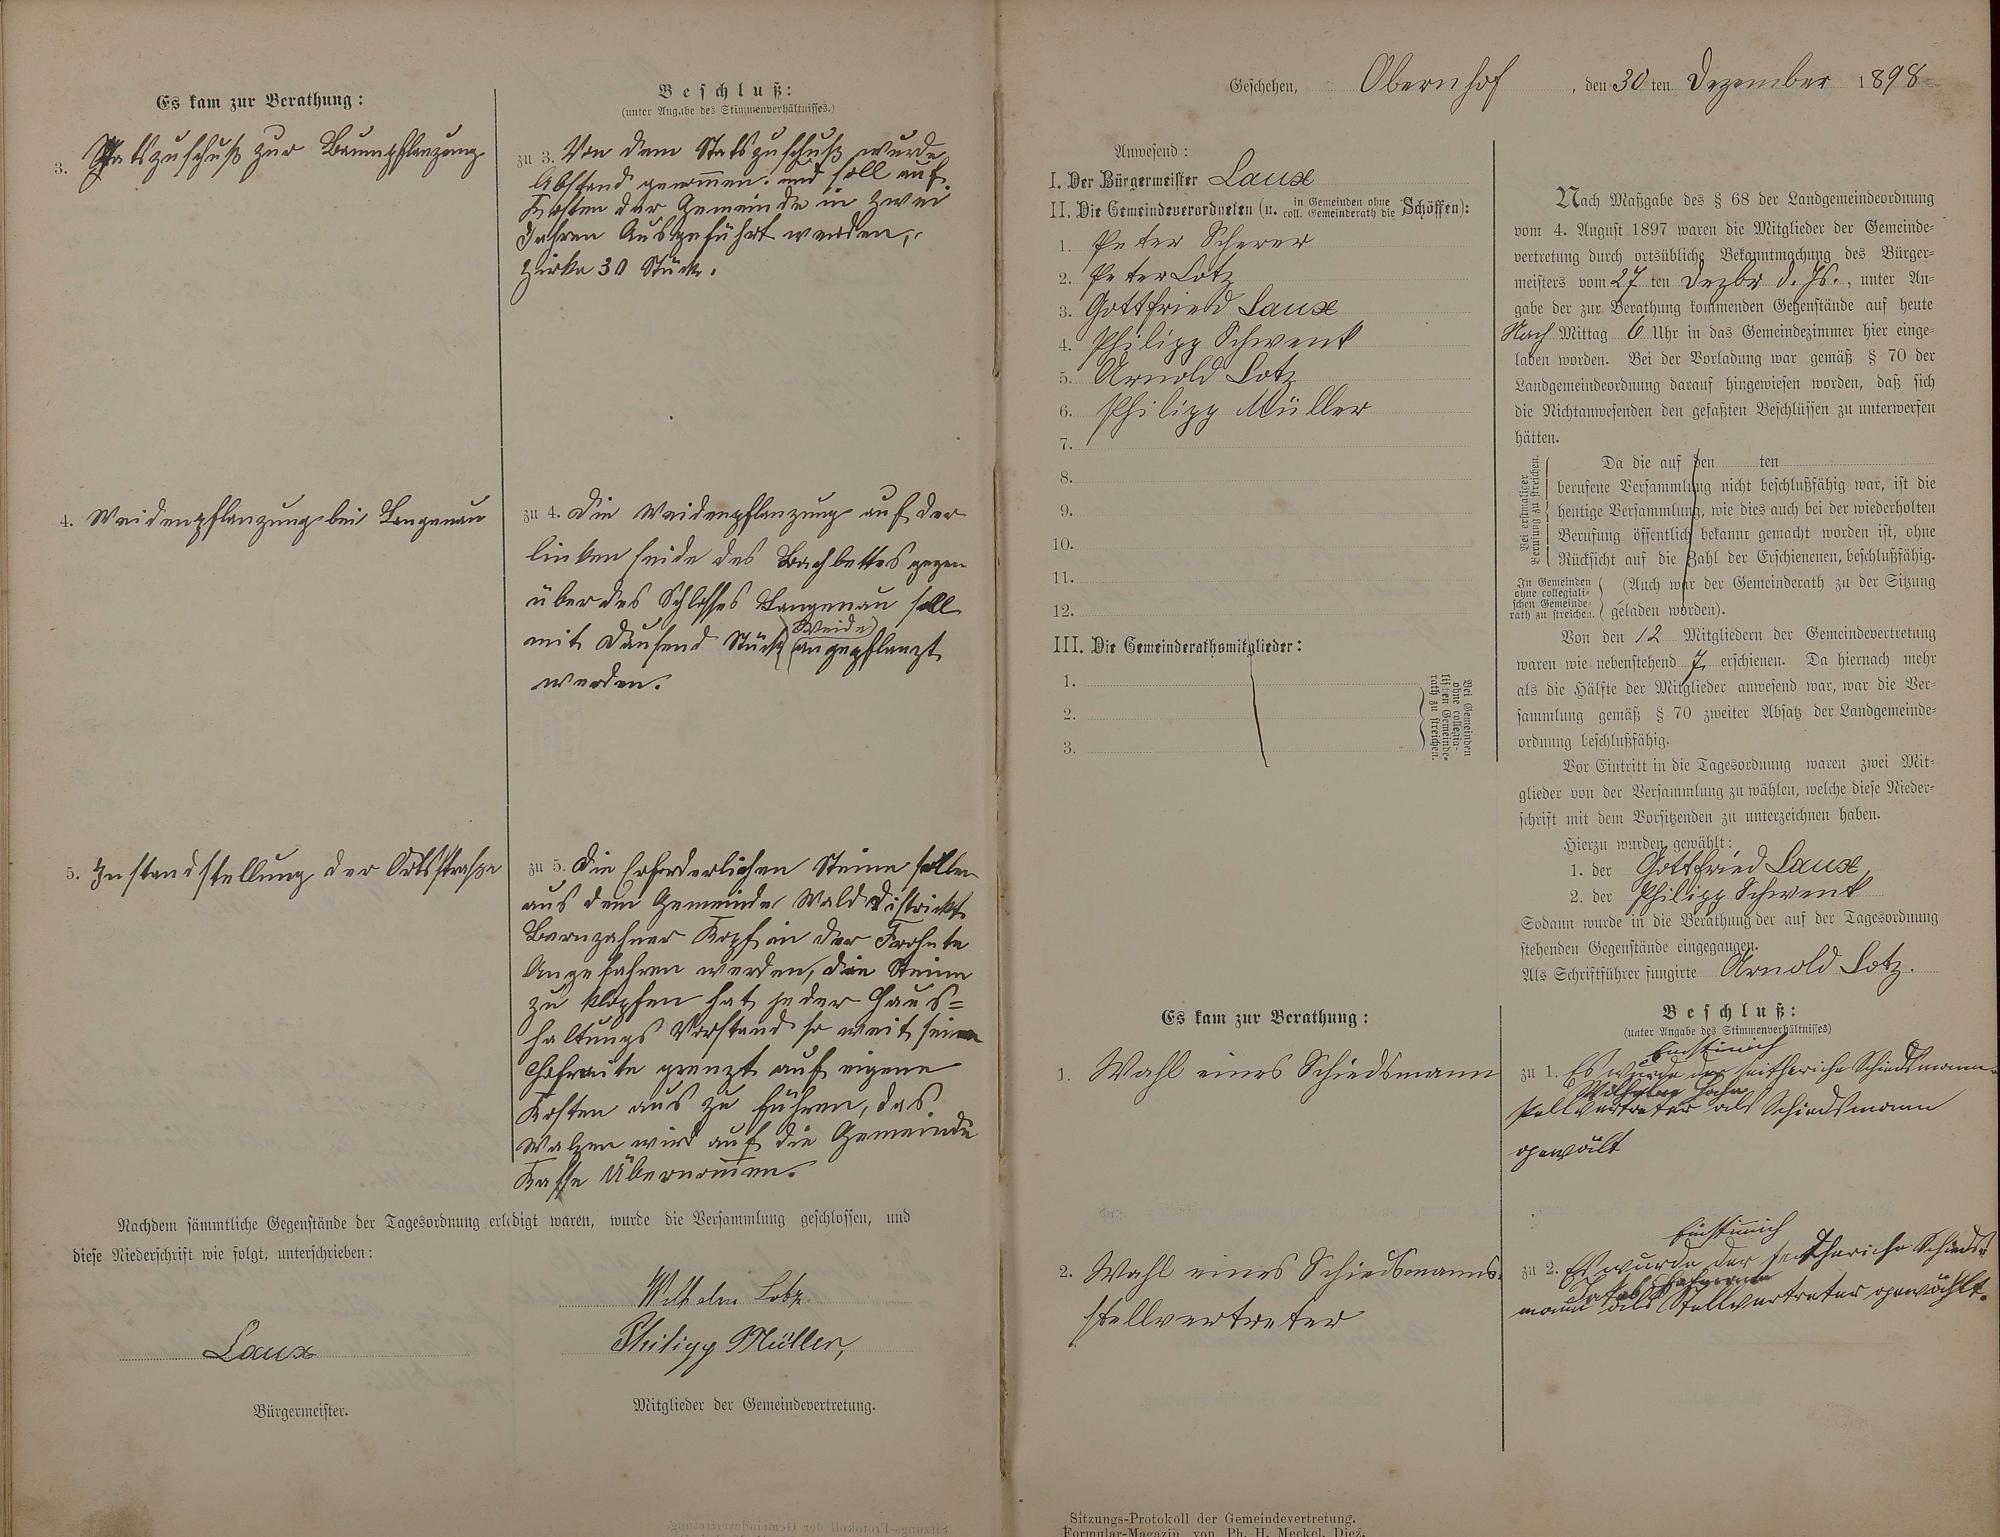 Es kam zur Berathung:
3. Statszuschuß zur Baumpflanzung
4. Weidenpflanzung bei Langenau
5. Instandstellung der Ortsstraße
Beschluß:
(unter Angabe des Stimmenverhältnisses.)
zu 3. Von dem Statszuschuß wurde
Abstand genommen. und soll auf
Kosten der Gemeinde in zwei
Jahren Ausgeführt werden,
zirka 30 Stück.
zu 4. Die Weidenpflanzung auf der
linken seide des Bachbettes gegen
über des Schlosses Langenau soll
mit Dausend Stück (Weide) angepflanzt
werden.
zu 5. Die Erforderlichen Steine sollen
aus dem Gemeinde Wald Districkt
Kopf in der Frohnte
Angefahren werden, die Steine
zu klopfen hat jeder Haus=
haltungs Vorstand so weit seine
Hofraite grenzt auf eigene
Kosten aus zu führen, das
Walzen wird auf die Gemeinde
Kasse Übernommen.
Nachdem sämmtliche Gegenstände der Tagesordnung erledigt waren, wurde die Versammlung geschlossen, und
diese Niederschrift wie folgt, unterschrieben:
Wilhelm Lotz
Laux
Philipp Müller,
Bürgermeister.
Mitglieder der Gemeindevertretung.
Geschehen, Obernhof, den 30 ten Dezember 1898
Anwesend:
I. Der Bürgermeister Laux
II. Die Gemeindeverordneten (u. in Gemeinden ohne coll. Gemeinderath die Schöffen):
1. Peter Scherer
2. Peter Lotz
3. Gottfried Laux
4. Philipp Schwenk
5. Arnold Lotz
6. Philipp Müller
7.
8.
9.
10.
11.
12.
III. Die Gemeinderathsmitglieder:
1.
2.
3.
Bei Gemeinden
ohne collegia-
lischen Gemeinde-
rath zu streichen.
Nach Maßgabe des § 68 der Landgemeindeordnung
vom 4. August 1897 waren die Mitglieder der Gemeinde-
vertretung durch ortsübliche Bekanntmachung des Bürger-
meisters vom 27 ten Dezbr d. Js., unter An-
gabe der zur Berathung kommenden Gegenstände auf heute
Nach Mittag 6 Uhr in das Gemeindezimmer hier einge-
laden worden. Bei der Vorladung war gemäß § 70 der
Landgemeindeordnung darauf hingewiesen worden, daß sich
die Nichtanwesenden den gefaßten Beschlüssen zu unterwerfen
hätten.
Bei erstmaliger
Berufung zu streichen.
Da die auf den ten
berufene Versammlung nicht beschlußfähig war, ist die
heutige Versammlung, wie dies auch bei der wiederholten
Berufung öffentlich bekannt gemacht worden ist, ohne
Rücksicht auf die Zahl der Erschienenen, beschlußfähig.
In Gemeinden
ohne collegiali-
schen Gemeinde-
rath zu streichen.
(Auch war der Gemeinderath zu der Sitzung
geladen worden).
Von den 12 Mitgliedern der Gemeindevertretung
waren wie nebenstehend 7 erschienen. Da hiernach mehr
als die Hälfte der Mitglieder anwesend war, war die Ver-
sammlung gemäß § 70 zweiter Absatz der Landgemeinde-
ordnung beschlußfähig.
Vor Eintritt in die Tagesordnung waren zwei Mit-
glieder von der Versammlung zu wählen, welche diese Nieder-
schrift mit dem Vorsitzenden zu unterzeichnen haben.
Hierzu wurden gewählt:
1. der Gottfried Laux
2. der Philipp Schwenk
Sodann wurde in die Berathung der auf der Tagesordnung
stehenden Gegenstände eingegangen.
Als Schriftführer fungirte Arnold Lotz.
Es kam zur Berathung:
1. Wahl eines Schiedsmann
2. Wahl eines Schiedsmanns-
stellvertreter
Beschluß:
(unter Angabe des Stimmenverhältnisses)
Einstimich
zu 1. Es wurde der seitheriche Schiedsmann-
Wilhelm
stellvertreter als Schiedsmann
gewält
Einstimich
zu 2. Es wurde der seitheriche Schieds-
Jakob
mann als Stellvertreter gewählt.
Sitzungs-Protokoll der Gemeindevertretung.
Formular-Magazin von Ph. H. Meckel, Diez.